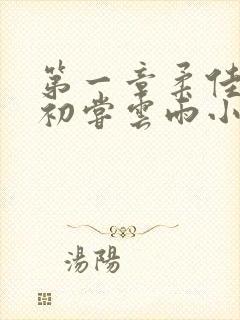 第一章柔佳
初嘗雲雨小
湯陽